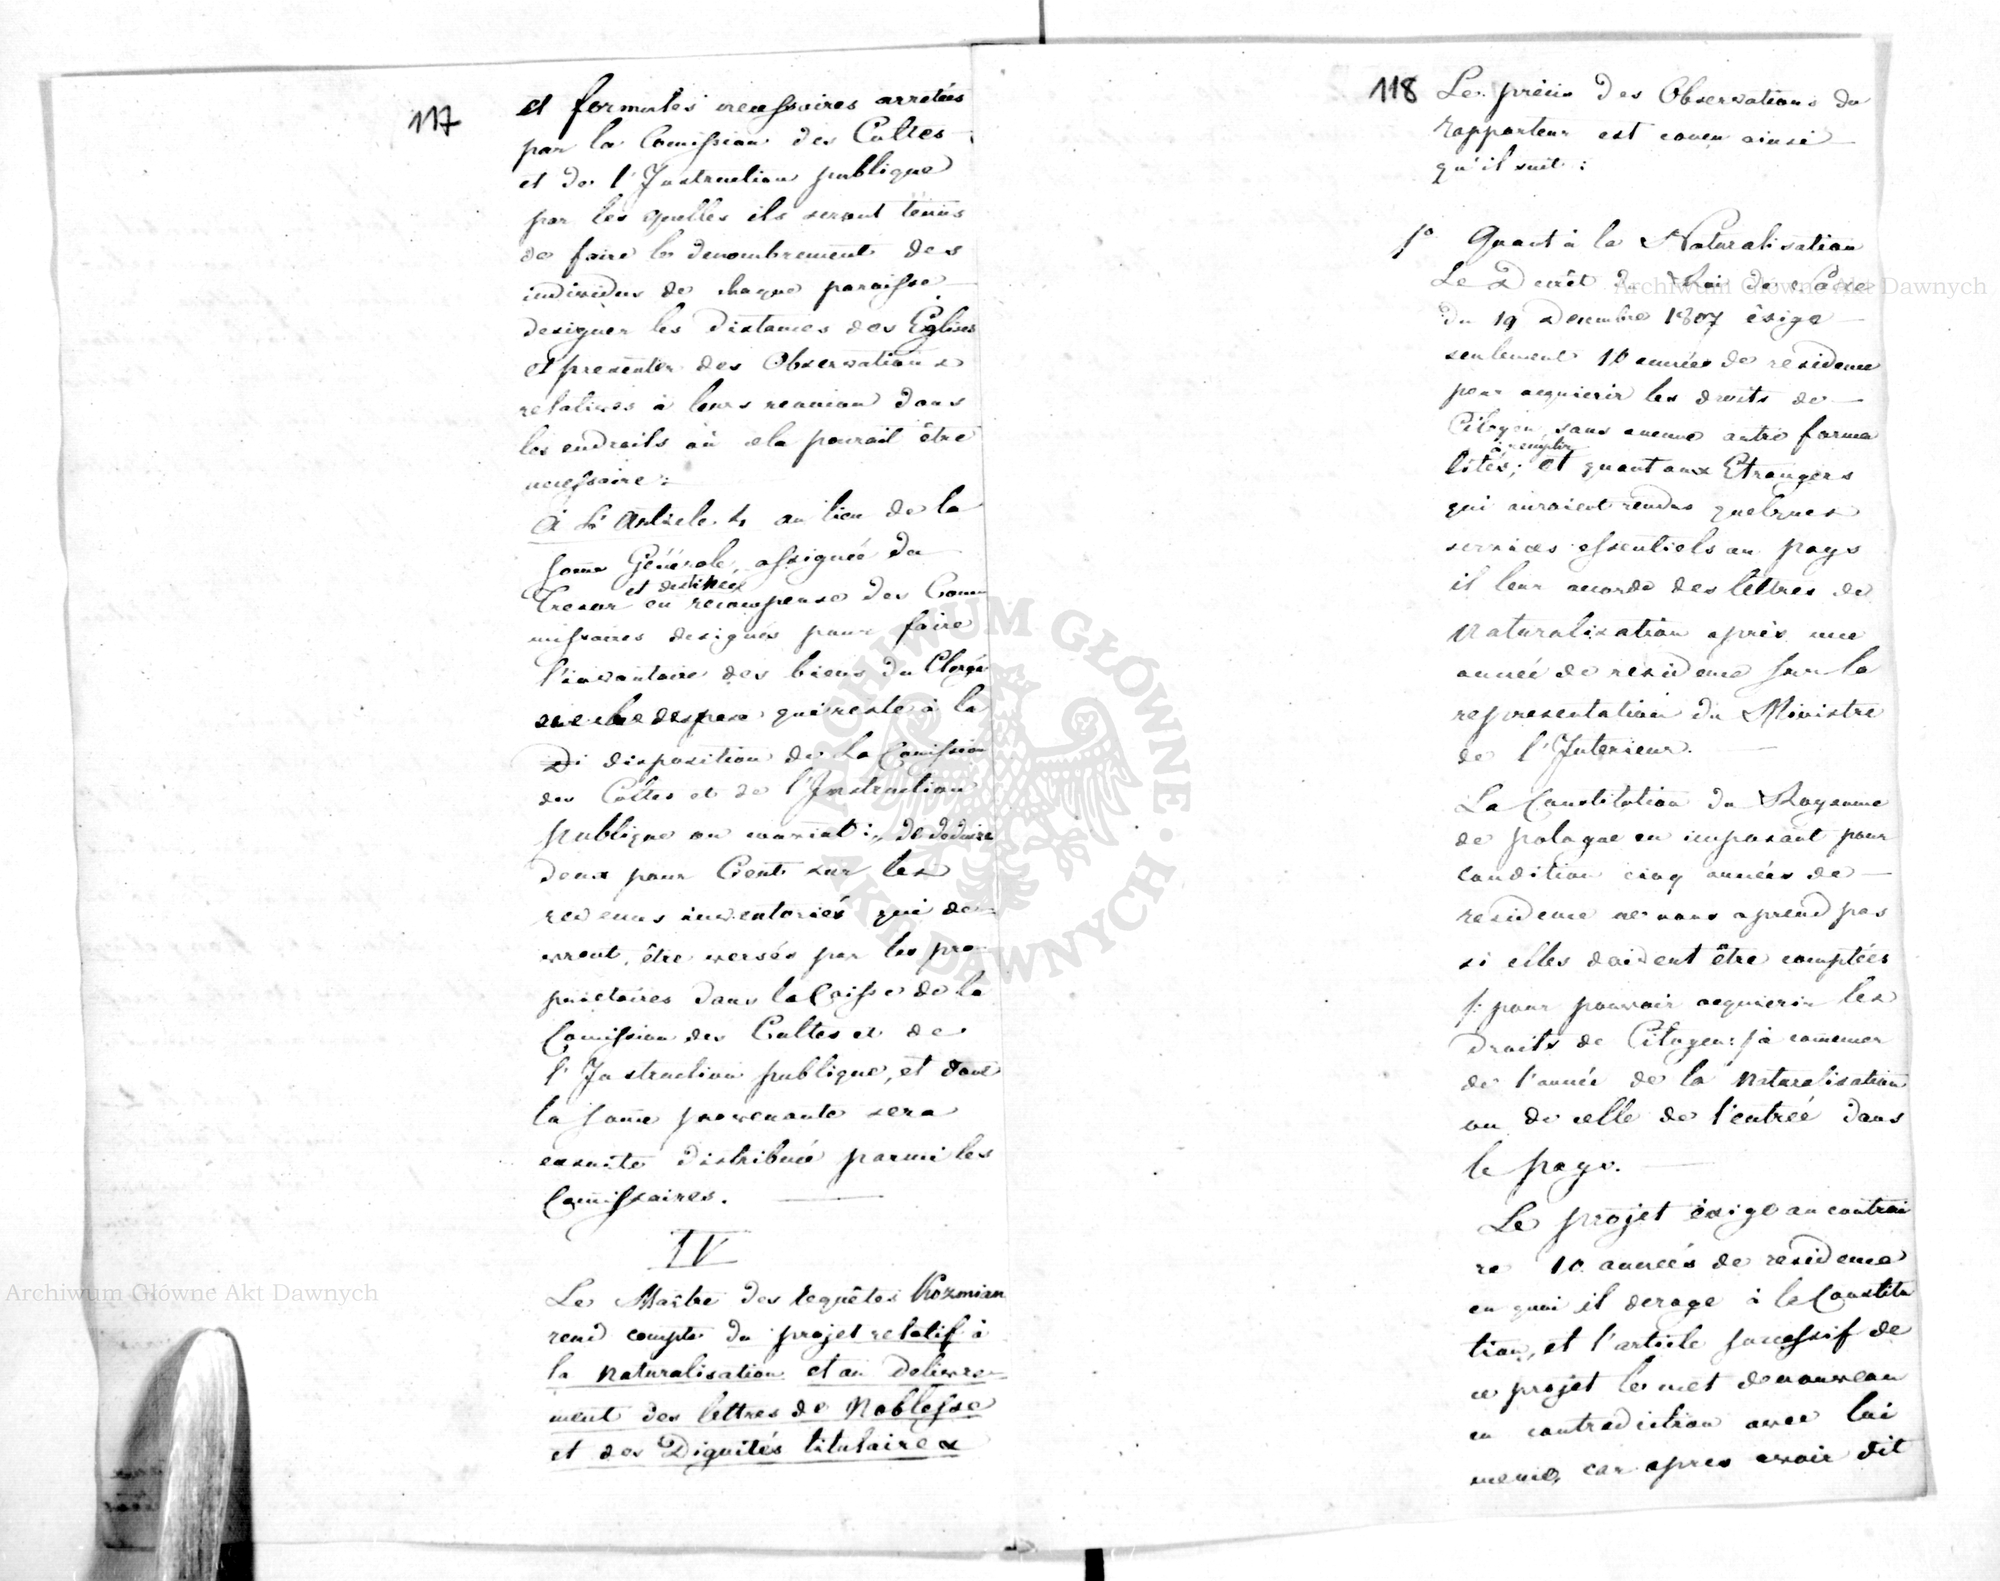 117
et formules necessaires arretées
par la Comission des Cultes
et de l'Instruction publique
par les quelles ils seront tenus
de faire le denombrement des
individus de chaque paroisse
designer les distances des Eglises
et presenter des Observations
relatives à leurs reunion dans
les endroits où cela pourait être
necessaire.
à L'Article 4 au lieu de la
some Générale, assignée du
et destinée
Tresor en recompense des Com
missaires designés pour faire
l'inventaire des biens du Clergé
qui reste à la
Di disposition de La Comission
des Cultes et de l'Instruction
publique on de deduire
deux pour Cent sur les
revenus inventoriés qui de=
vront être versés par les pro=
prietaires dans la Caisse de la
Comission des Cultes et de
l'Instruction publique, et dont
la some provenante sera
ensuite distribuée parmi les
Comissaires.
IV
Le Maître des requêtes Kozmian
rend compte du projet relatif à
la Naturalisation et au Delivre=
ment des lettres de Noblesse
et des Dignités titulaires
118
Le précis des Observations du
rapporteur est conçu ainsi
qu'il suit:
1º Quant à la Naturalisation
Le Decrêt du Roi de Saxe
du 19 Decembre 1807 éxige
seulement 10 années de residence
pour acquierir les droits de
Citoyen, sans aucune autre forma
à remplir
lités; et quant aux Etrangers
qui auraient rendus quelques
services essentiels au pays
il leur accorde des lettres de
Naturalisation après une
année de residence sur la
representation du Ministre
de l'Interieur.
La Constitution du Royaume
de pologne en imposant pour
condition cinq années de
residence ne nous aprend pas
si elles doivent être comptées
/: pour pouvoir acquierir les
Droits de Citoyen :/ à commencer
de l'année de la Naturalisation
ou de celle de l'entrée dans
le pays.
Le projet éxige au contrai
re 10 années de residence
en quoi il deroge à la Constitu
tion, et l'article successif de
ce projet le met de nouveau
en contradiction avec lui
meme, car apres avoir dit
Archiwum Główne Akt Dawnych
Archiwum Główne Akt Dawnych
ARCHIWUM GŁÓWNE · AKT DAWNYCH ·